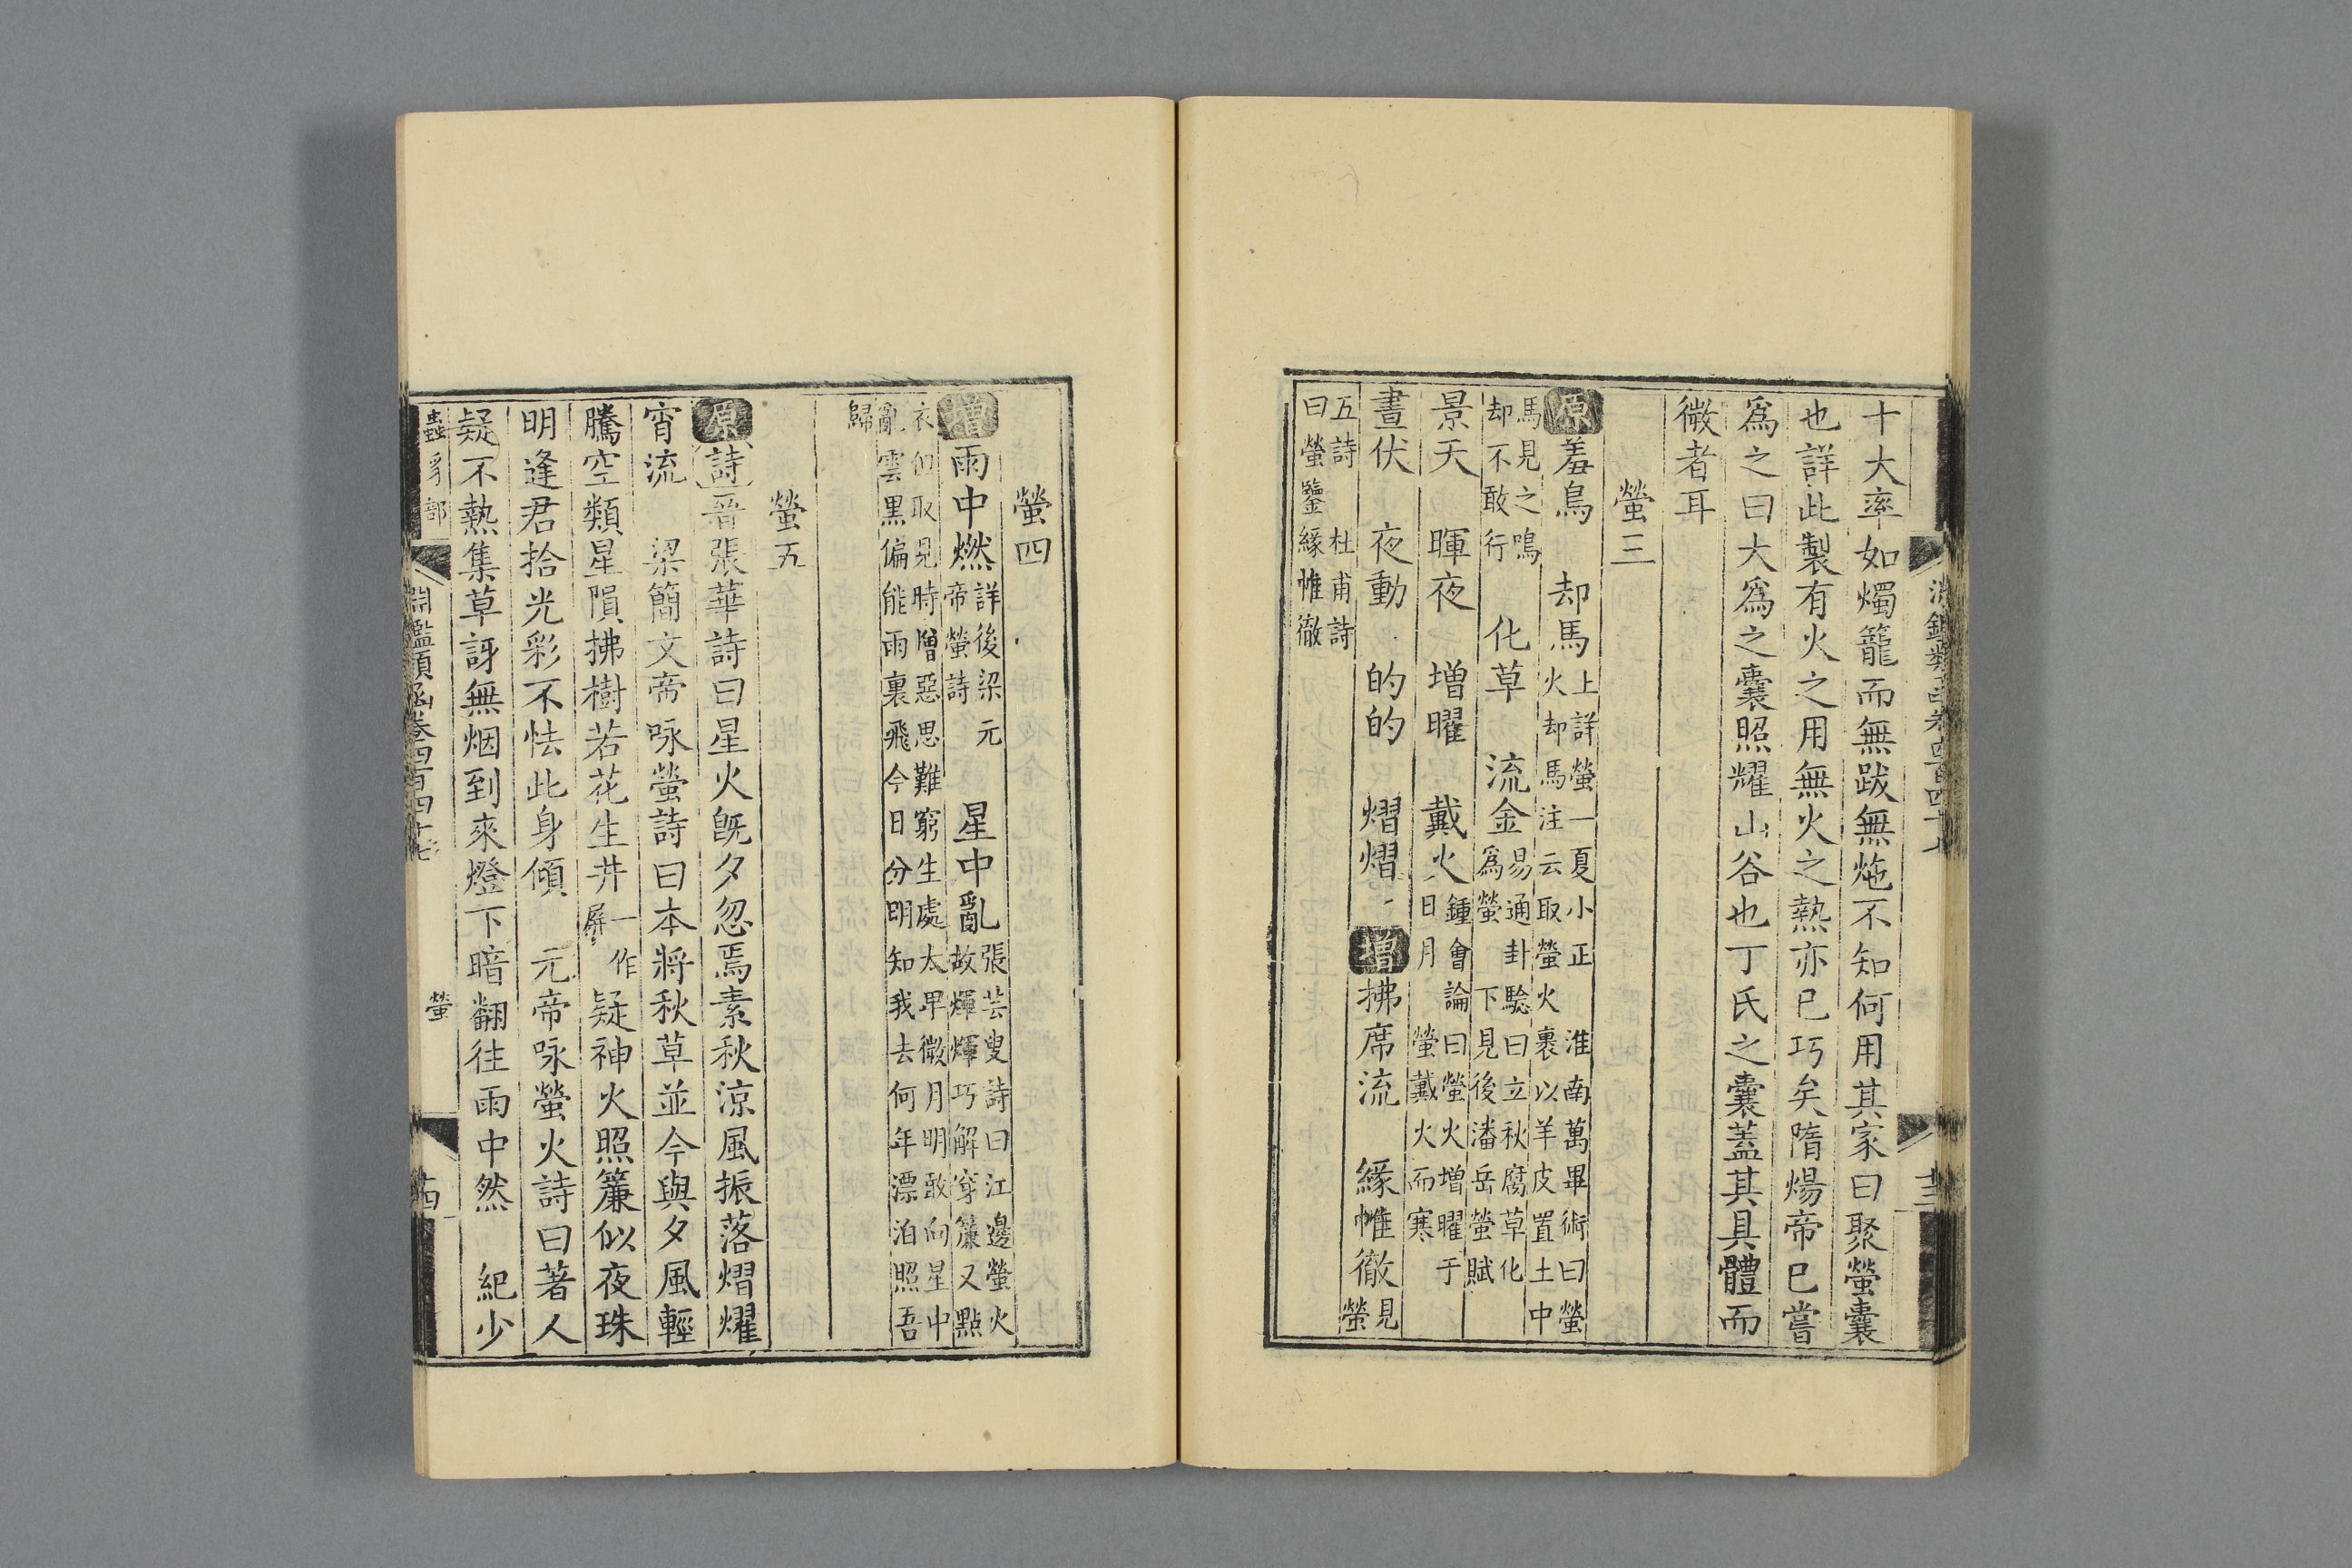 十大率如燭籠而無跋無炧不知何用其家曰聚螢囊
也詳此製有火之用無火之熱亦已巧矣隋煬帝已嘗
爲之曰大爲之囊照耀山谷也丁氏之囊蓋其具體而
微者耳
螢三
原羞鳥 却馬上詳螢一夏小正 淮南萬畢術曰螢
火却馬注云取螢火裹以羊皮置土中
馬見之鳴
却不敢行 化草 流金易通卦驗曰立秋腐草化
爲螢 下見後潘岳螢賦
景天 暉夜 増曜 戴火鍾會論曰螢火増曜于
日月 螢戴火而寒
晝伏 夜動 的的 熠熠 増拂席流 緣帷徹見
螢
五詩 杜甫詩
曰螢鑒緣帷徹
螢四
増雨中燃詳後梁元
帝螢詩 星中亂張芸叟詩曰江邊螢火
故煇煇巧解穿簾又點
衣但取見時憎惡思難窮生處太早微月明敢向星中
亂雲黒偏能雨裏飛今日分明知我去何年漂泊照吾
歸
螢五
原詩晉張華詩曰星火旣夕忽焉素秋涼風振落熠燿
宵流 梁簡文帝咏螢詩曰本將秋草並今與夕風輕
騰空類星隕拂樹若花生井一作
屏疑神火照簾似夜珠
明逢君拾光彩不怯此身傾 元帝咏螢火詩曰著人
疑不熱集草訝無烟到來燈下暗翻往雨中然 紀少
蟲豸部 淵鑑類函卷四百四十七 螢 十四